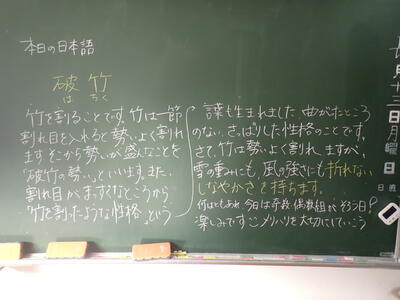 本日の日本語
破竹
はちく
竹を割ることです。竹は一節
割れ目を入れると勢いよく割れ
ます。そこから勢いが盛んなことを
「破竹の勢い」といいます。また、
割れ目がまっすぐなところから
「竹を割ったような性格」という
言葉も生まれました。曲がたところ
のない、さっぱりした性格のことです。
さて、竹は勢いよく割れますが、
雪の重みにも、風の強さにも折れない
しなやかさを持ちます。
何はともあれ、今日は奇数偶数組がそろう日?
楽しみです。メリハリを大切にしていこう
月十三日月曜日
日直